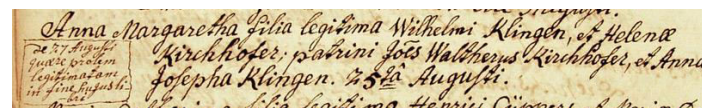 Anna Margaretha filia legitima Wilhelmi Klingen, et Helenæ
Kirchhofer; patrini Joes Waltherus Kirchhofer, et Anna
Josepha Klingen. 25ta Augusti.
de 27 Augusti
quære prolem
legitimatam
in fine Augusti
filia legitima Henrici Cüppers